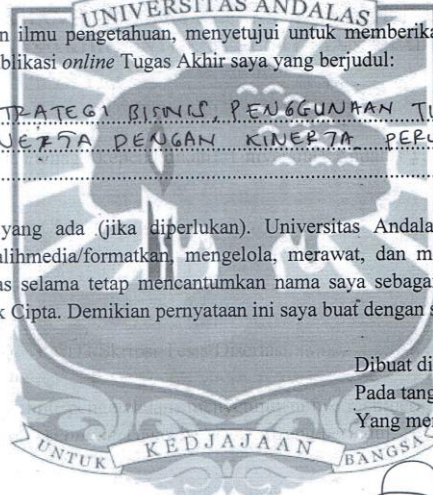 UNIVERSITAS ANDALAS
n ilmu pengetahuan, menyetujui untuk memberika
ublikasi online Tugas Akhir saya yang berjudul:
TRATEGI BISNIS, PENGGUNAAN
DENGAN KINERJA
yang ada (jika diperlukan). Universitas Andala
alihmedia/formatkan, mengelola, merawat, dan m
as selama tetap mencantumkan nama saya sebaga
k Cipta. Demikian pernyataan ini saya buat dengan s
Dibuat di
Pada tang
Yang mer
UNTUK KEDJAJAAN BANGSA